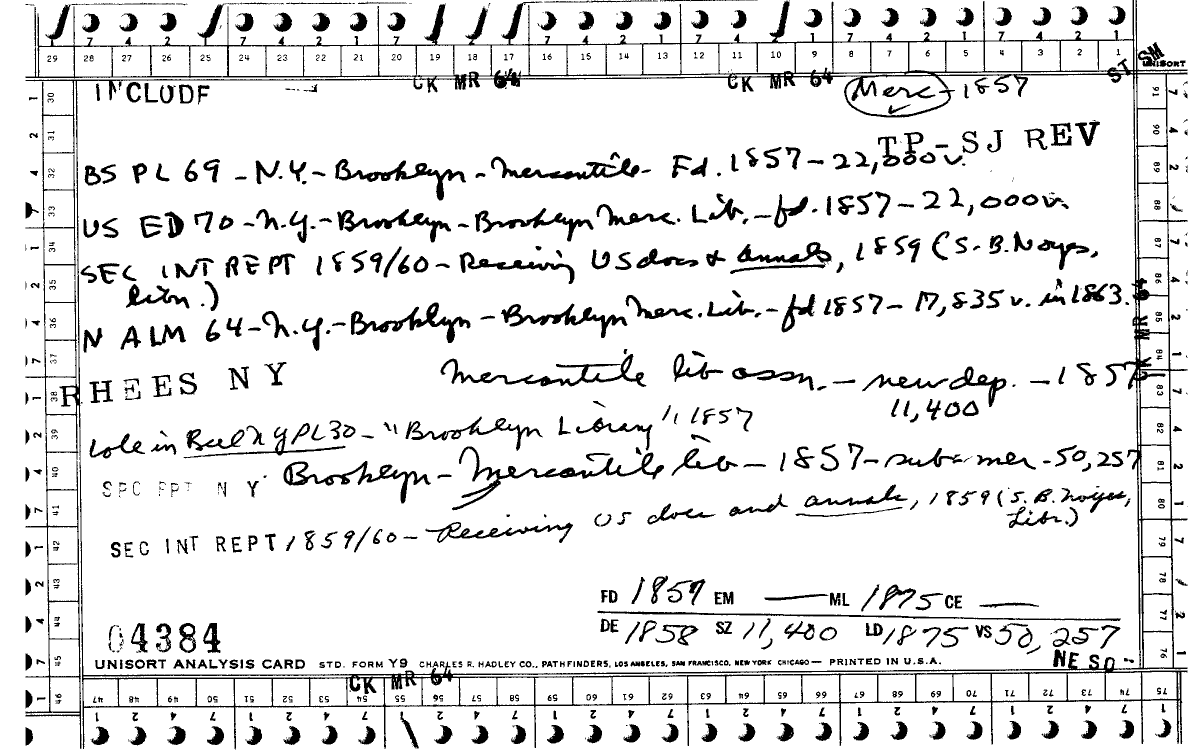 7 4 2 1 7 4 2 1 7 4 2 1 7 4 2 1 7 4 2 1 7 4 2 1
29 28 27 26 25 24 23 22 21 20 19 18 17 16 15 14 13 12 11 10 9 8 7 6 5 4 3 2 1
UNISORT
ST SM
INCLUDE CK MR 64 CK MR 64 Merc - 1857
TP-SJ REV
BS PL 69 - N.Y. - Brooklyn - Mercantile - Fd. 1857 - 22,000 v.
US ED 70 - N.Y. - Brooklyn - Brooklyn Merc. Lib. - fd. 1857 - 22,000 v.
SEC INT REPT 1859/60 - Receiving US docs & annals, 1859 (S. B. Noyes,
libn.)
N ALM 64 - N.Y. - Brooklyn - Brooklyn Merc. Lib. - fd 1857 - 17,835 v. in 1863.
MR 64
RHEES NY Mercantile lib assn. - new dep. - 1857
11,400
in Bul NYPL 30 - "Brooklyn Library", 1857
SPC RPT NY Brooklyn - Mercantile lib - 1857 - sub & mer - 50,257
SEC INT REPT 1859/60 - Receiving US docs and annals, 1859 (S. B. Noyes,
Libr.)
FD 1857 EM — ML 1875 CE —
DE 1858 SZ 11,400 LD 1875 VS 50,257
04384
NE SO -
UNISORT ANALYSIS CARD STD. FORM Y9 CHARLES R. HADLEY CO., PATHFINDERS, LOS ANGELES, SAN FRANCISCO, NEW YORK CHICAGO — PRINTED IN U.S.A.
CK MR 64
30 31 32 33 34 35 36 37 38 39 40 41 42 43 44 45 46
91 90 89 88 87 86 85 84 83 82 81 80 79 78 77 76
47 48 49 50 51 52 53 54 55 56 57 58 59 60 61 62 63 64 65 66 67 68 69 70 71 72 73 74 75
1 2 4 7 1 2 4 7 1 2 4 7 1 2 4 7 1 2 4 7 1 2 4 7 1 2 4 7